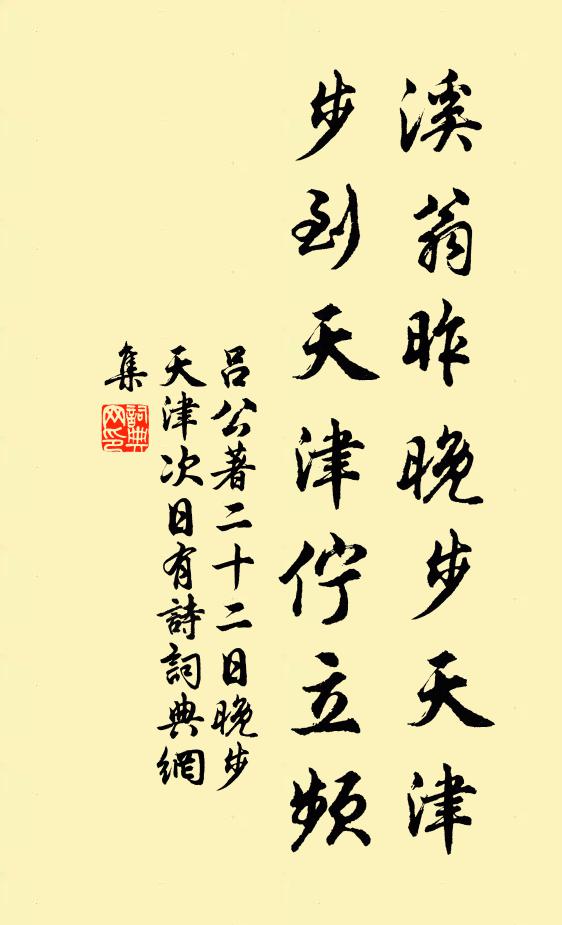 溪翁昨晚步天津
步到天津佇立頻
呂公著二十二日晚步
天津次日有詩詞典網
集
詞典網印